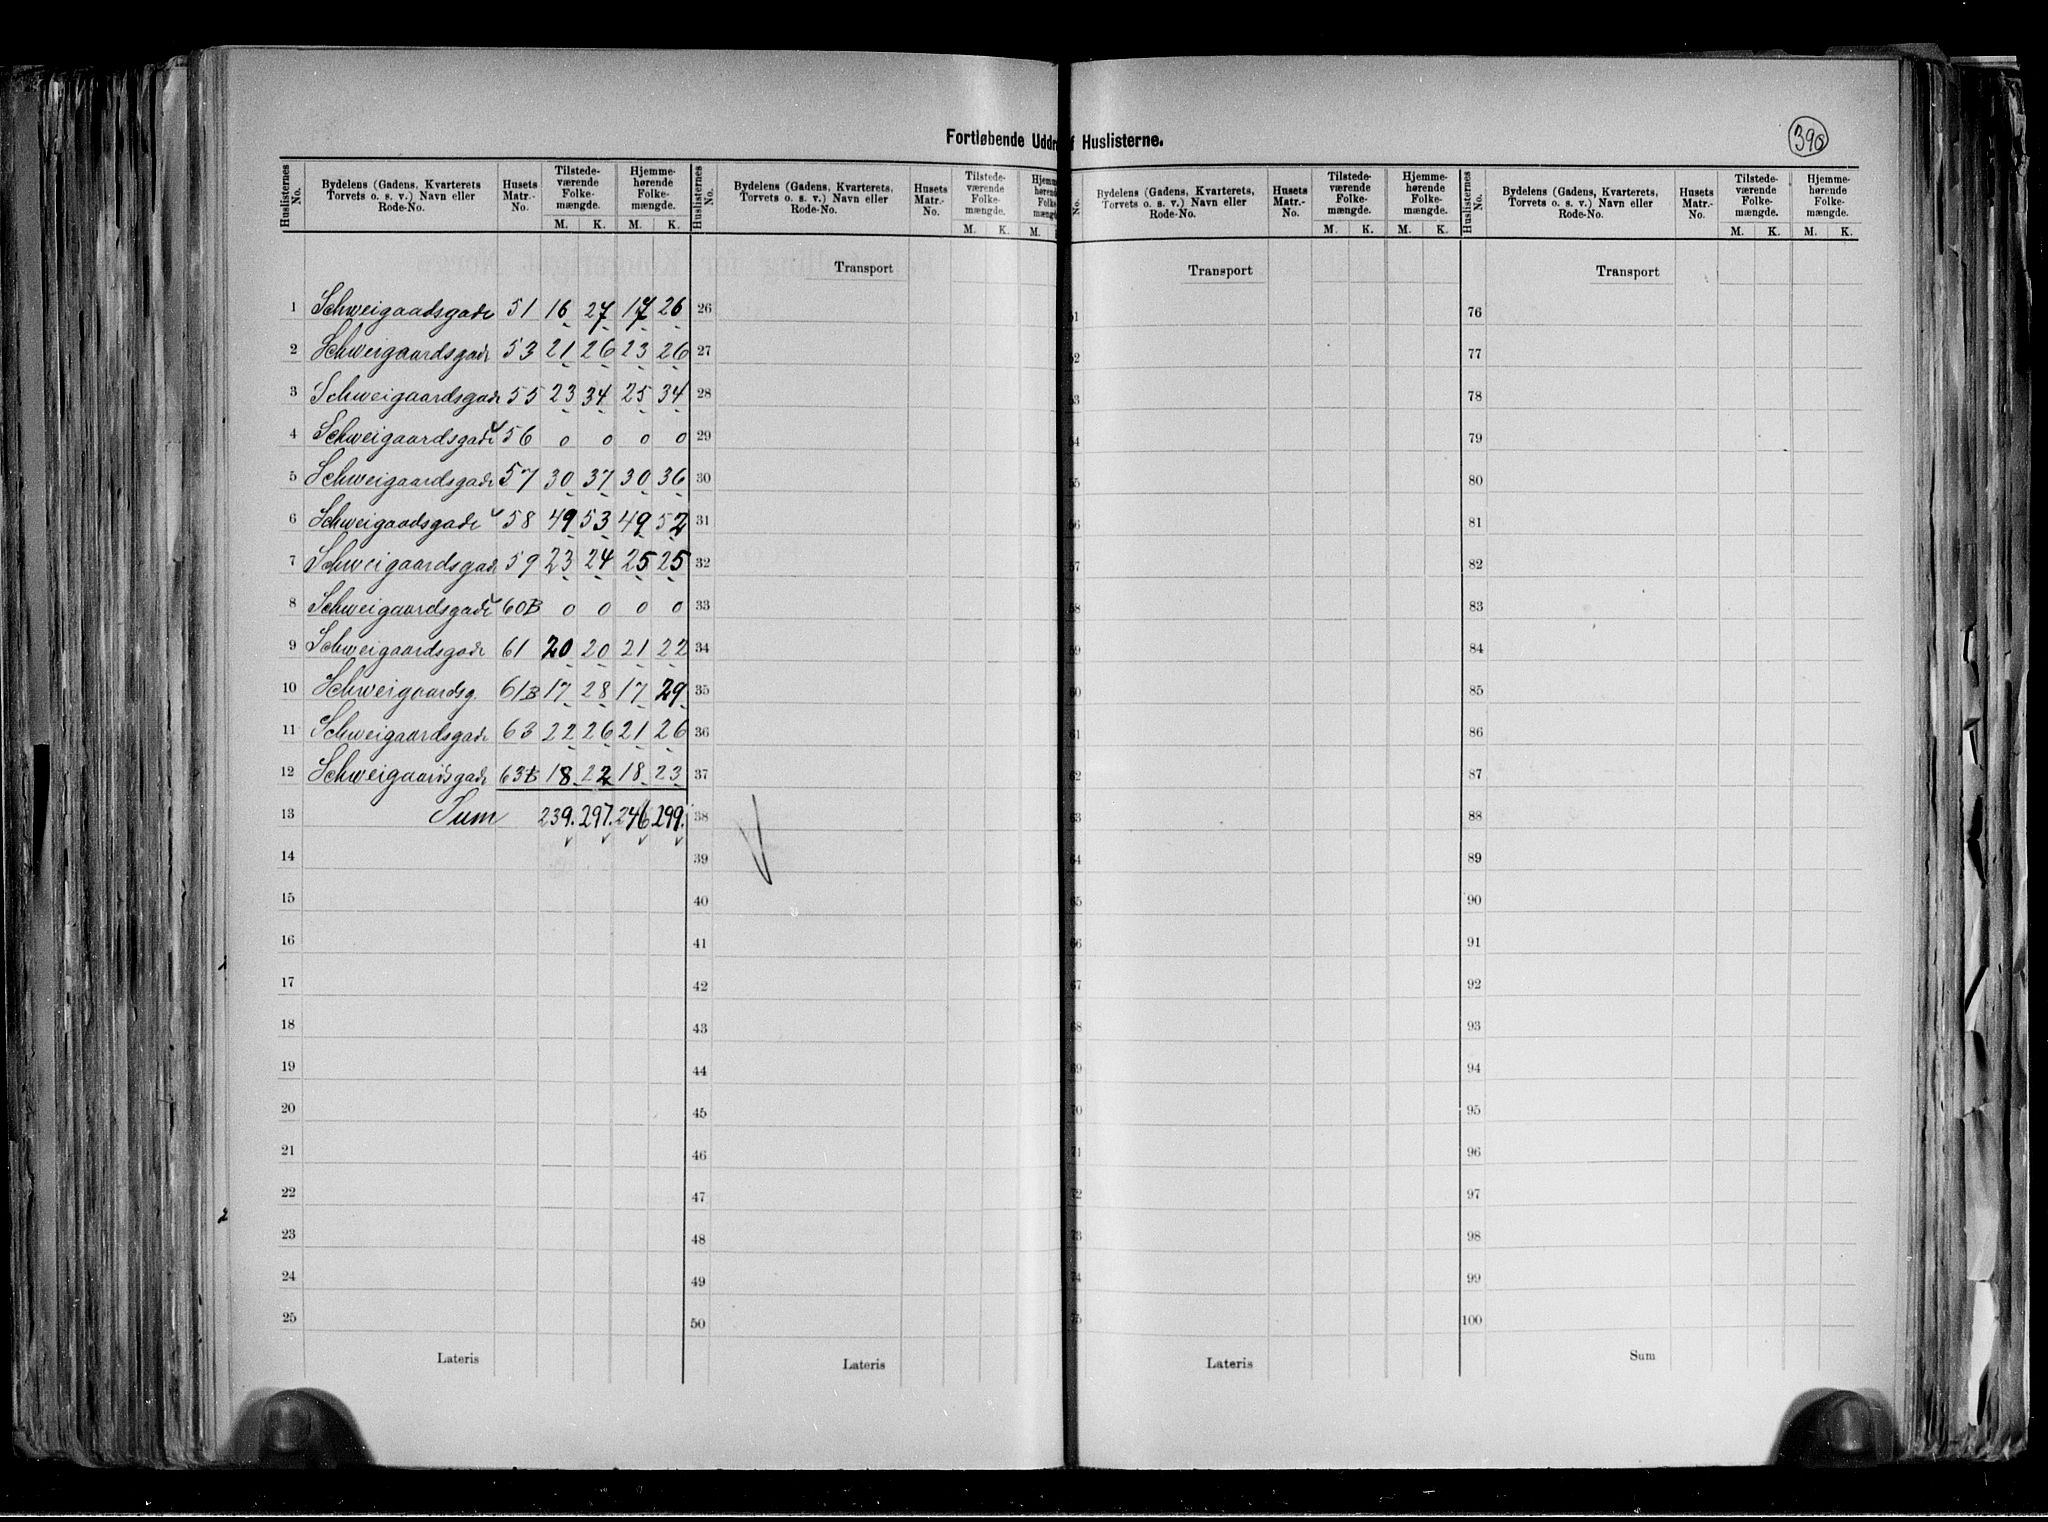 Fortløbende Uddr f Huslisterne.
390
Huslisternes No. | Bydelens (Gadens, Kvarterets Torvets o. s. v.) Navn eller Rode-No. | Husets Matr.-No. | Tilstede-værende Folke-mængde. M. K. | Hjemme-hørende Folke-mængde. M. K.
1 Schweigaadsgade 51 16 27 17 26
2 Schweigaardsgade 53 21 26 23 26
3 Schweigaardsgade 55 23 34 25 34
4 Schweigaardsgade 56 0 0 0 0
5 Schweigaardsgade 57 30 37 30 36
6 Schweigaadsgade 58 49 53 49 52
7 Schweigaardsgade 59 23 24 25 25
8 Schweigaardsgade 60B 0 0 0 0
9 Schweigaardsgade 61 20 20 21 22
10 Schweigaardsg. 61B 17 28 17 29
11 Schweigaardsgade 63 22 26 21 26
12 Schweigaardsgade 63B 18 22 18 23
13 Sum 239. 297. 246. 299.
14
15
16
17
18
19
20
21
22
23
24
25
Lateris
Huslisternes No. | Bydelens (Gadens, Kvarterets, Torvets o. s. v.) Navn eller Rode-No. | Husets Matr.-No. | Tilstede-værende Folke-mængde. M. K. | Hjemm hørende Folke mængd M.
Transport
26
27
28
29
30
31
32
33
34
35
36
37
38
39
40
41
42
43
44
45
46
47
48
49
50
Lateris
No. | Bydelens (Gadens, Kvarterets, Torvets o. s. v.) Navn eller Rode-No. | Husets Matr.-No. | Tilstede-værende Folke-mængde. M. K. | Hjemme-hørende Folke-mængde. M. K.
Transport
51
52
53
54
55
56
57
58
59
60
61
62
63
64
65
66
67
68
69
70
71
72
73
74
75
Lateris
Huslisternes No. | Bydelens (Gadens, Kvarterets, Torvets o. s. v.) Navn eller Rode-No. | Husets Matr.-No. | Tilstede-værende Folke-mængde. M. K. | Hjemme-hørende Folke-mængde. M. K.
Transport
76
77
78
79
80
81
82
83
84
85
86
87
88
89
90
91
92
93
94
95
96
97
98
99
100
Sum